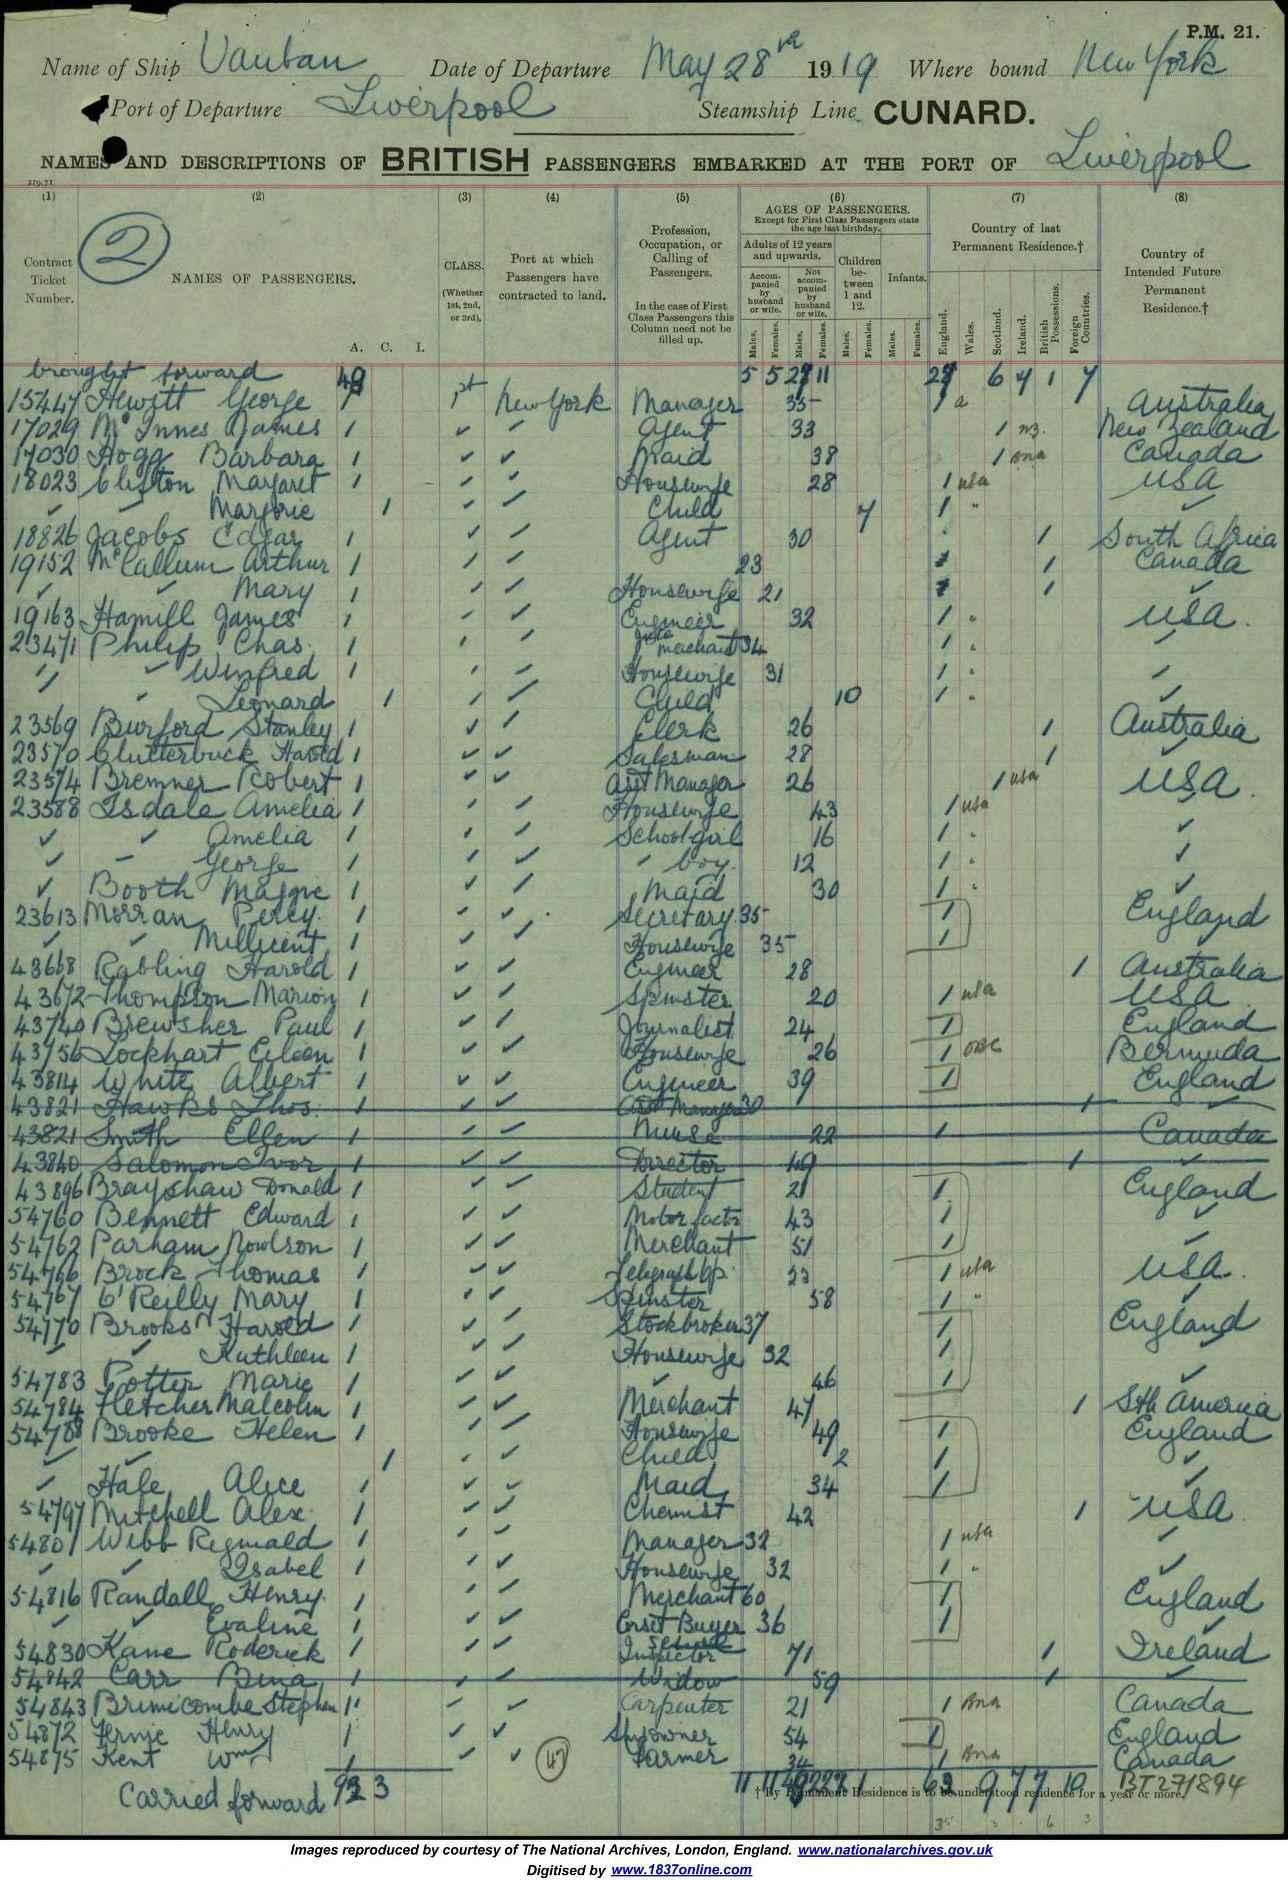 P.M. 21.
Name of Ship Vauban Date of Departure May 28th 1919 Where bound New York
Port of Departure Liverpool Steamship Line CUNARD.
NAMES AND DESCRIPTIONS OF BRITISH PASSENGERS EMBARKED AT THE PORT OF Liverpool
(1) (2) (3) (4) (5) (6) (7) (8)
Contract Ticket Number.
2
NAMES OF PASSENGERS.
A. C. I.
CLASS. (Whether 1st, 2nd, or 3rd).
Port at which Passengers have contracted to land.
Profession, Occupation, or Calling of Passengers.
In the case of First Class Passengers this Column need not be filled up.
AGES OF PASSENGERS.
Except for First Class Passengers state the age last birthday.
Adults of 12 years and upwards.
Accompanied by husband or wife.
Not accompanied by husband or wife.
Children between 1 and 12.
Infants.
Males. Females. Males. Females. Males. Females. Males. Females.
Country of last Permanent Residence.†
England. Wales. Scotland. Ireland. British Possessions. Foreign Countries.
Country of Intended Future Permanent Residence.†
brought forward 5 5 11 6 4 1 7
15447 Hewitt George 1 1st New York Manager 35 1 a Australia
17029 McInnes James 1 ✓ ✓ Agent 33 1 nz. New Zealand
17030 Hogg Barbara 1 ✓ ✓ Maid 38 1 bna Canada
18023 Clifton Margaret 1 ✓ ✓ Housewife 28 1 usa USA
✓ ✓ Marjorie 1 ✓ ✓ Child 7 1 " ✓
18826 Jacobs Edgar 1 ✓ ✓ Agent 30 1 South Africa
19152 McCallum Arthur 1 ✓ ✓ 23 1 Canada
✓ ✓ Mary 1 ✓ ✓ Housewife 21 1 ✓
19163 Hamill James 1 ✓ ✓ Engineer 32 1 " USA.
23471 Philip Chas. 1 ✓ ✓ Jute merchant 34 1 " ✓
✓ ✓ Winifred 1 ✓ ✓ Housewife 31 1 " ✓
✓ Leonard 1 ✓ ✓ Child 10 1 " ✓
23569 Burford Stanley 1 ✓ ✓ Clerk 26 1 Australia
23570 Clutterbuck Harold 1 ✓ ✓ Salesman 28 1 ✓
23574 Bremner Robert 1 ✓ ✓ Asst Manager 26 1 usa USA.
23588 Isdale Amelia 1 ✓ ✓ Housewife 43 1 usa ✓
✓ ✓ Amelia 1 ✓ ✓ Schoolgirl 16 1 " ✓
✓ – George 1 ✓ ✓ ✓ boy. 12 1 " ✓
✓ Booth Maggie 1 ✓ ✓ Maid 30 1 " ✓
23613 Morran Percy. 1 ✓ ✓ Secretary 35 1 England
✓ ✓ Millicent 1 ✓ ✓ Housewife 35 1 ✓
43668 Rabling Harold 1 ✓ ✓ Engineer 28 1 Australia
43672 Thompson Marion 1 ✓ ✓ Spinster 20 1 usa USA
43740 Brewsher Paul 1 ✓ ✓ Journalist 24 1 England
43756 Lockhart Eileen 1 ✓ ✓ Housewife 26 1 Bermuda
43814 White Albert 1 ✓ ✓ Engineer 39 1 England
43821 Hawks Thos. 1 ✓ ✓ Asst Manager 30 1 ✓
43821 Smith Ellen 1 ✓ ✓ Nurse 22 1 Canada
43840 Salomon Ivor 1 ✓ ✓ Director 49 1 ✓
43896 Brayshaw Donald 1 ✓ ✓ Student 21 1 England
54760 Bennett Edward 1 ✓ ✓ Motor factor 43 1 ✓
54762 Parham Nowlson 1 ✓ ✓ Merchant 51 1 ✓
54766 Brock Thomas 1 ✓ ✓ Telegraph Op. 23 1 usa USA.
54767 O'Reilly Mary 1 ✓ ✓ Spinster 58 1 " ✓
54770 Brooks Harold 1 ✓ ✓ Stockbroker 37 1 England
✓ ✓ Kathleen 1 ✓ ✓ Housewife 32 1
54783 Potter Marie 1 ✓ ✓ ✓ 46 1 ✓
54784 Fletcher Malcolm 1 ✓ ✓ Merchant 47 1 Sth America
54788 Brooke Helen 1 ✓ ✓ Housewife 49 1 England
✓ ✓ 1 ✓ ✓ Child 2 1 ✓
✓ Hale Alice 1 ✓ ✓ Maid 34 1 ✓
54797 Mitchell Alex. 1 ✓ ✓ Chemist 42 1 USA
54801 Webb Reginald 1 ✓ ✓ Manager 32 1 usa ✓
✓ ✓ Isabel 1 ✓ ✓ Housewife 32 1 " ✓
54816 Randall Henry. 1 ✓ ✓ Merchant 60 1 England
✓ ✓ Evaline 1 ✓ ✓ Corset Buyer 36 1 ✓
54830 Kane Roderick 1 ✓ ✓ School Inspector 71 1 Ireland
54842 Carr Bina 1 ✓ ✓ Widow 59 1 ✓
54843 Brimicombe Stephen 1 ✓ ✓ Carpenter 21 1 Bna Canada
54872 Fernie Henry 1 ✓ ✓ Shipowner 54 1 England
54875 Kent Wm 1 ✓ ✓ 47 Farmer 34 1 Bna Canada
Carried forward 3 11 11 1 9 7 7 10 BT27/894
† By Permanent Residence is to be understood residence for a year or more.
Images reproduced by courtesy of The National Archives, London, England. www.nationalarchives.gov.uk
Digitised by www.1837online.com